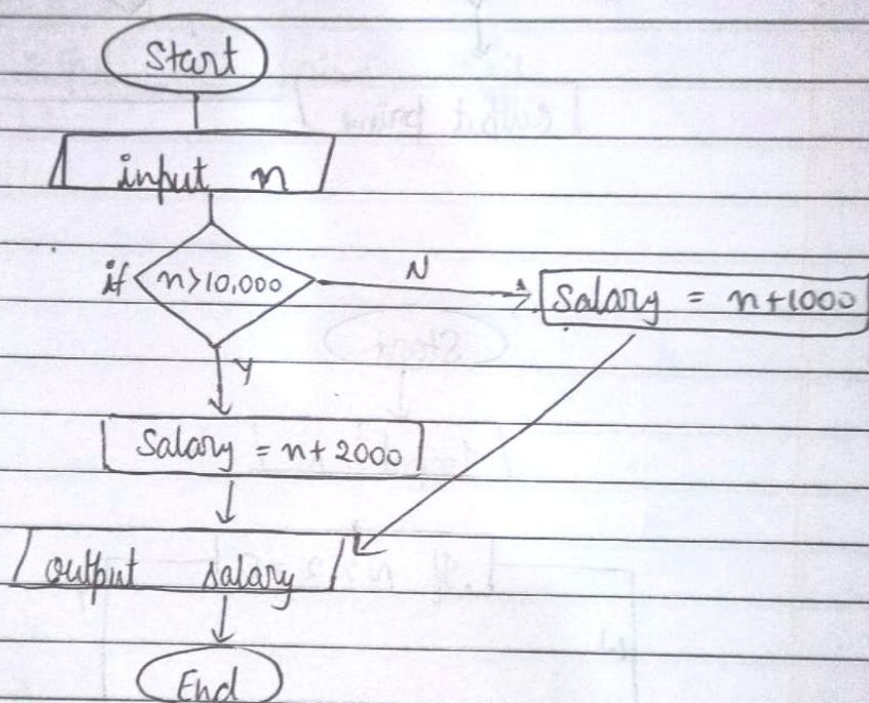 Start
input n
if n>10,000
N
Salary = n+1000
Y
Salary = n+2000
output salary
End